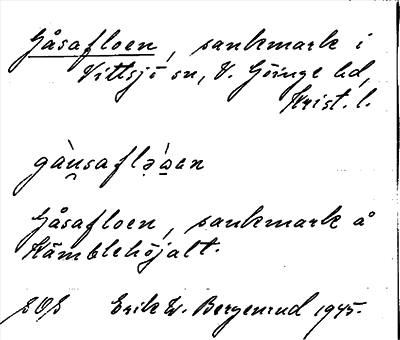 Gåsafloen, sankmark i
Vittsjö sn, V. Göinge hd,
Krist. l.
gàu̯saflə̀u̯en
Gåsafloen, sankmark å
Kämblehöjalt.
SOS Erik W. Bergenrud 1945.